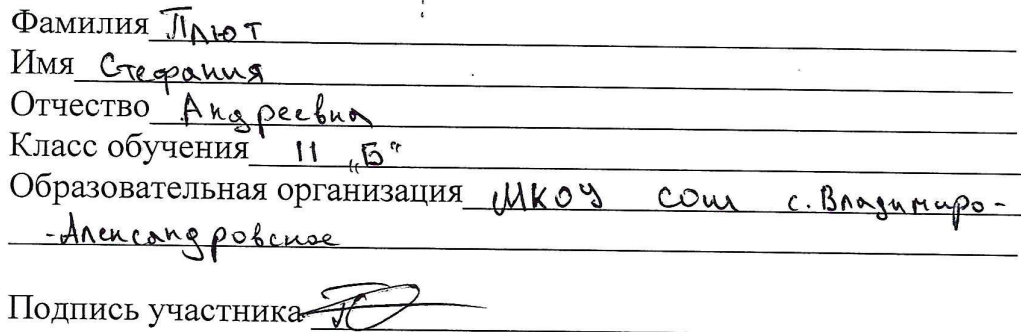 Фамилия Плют
Имя Стефания
Отчество Андреевна
Класс обучения 11 „Б“
Образовательная организация МКОУ СОШ с. Владимиро-
-Александровское
Подпись участника